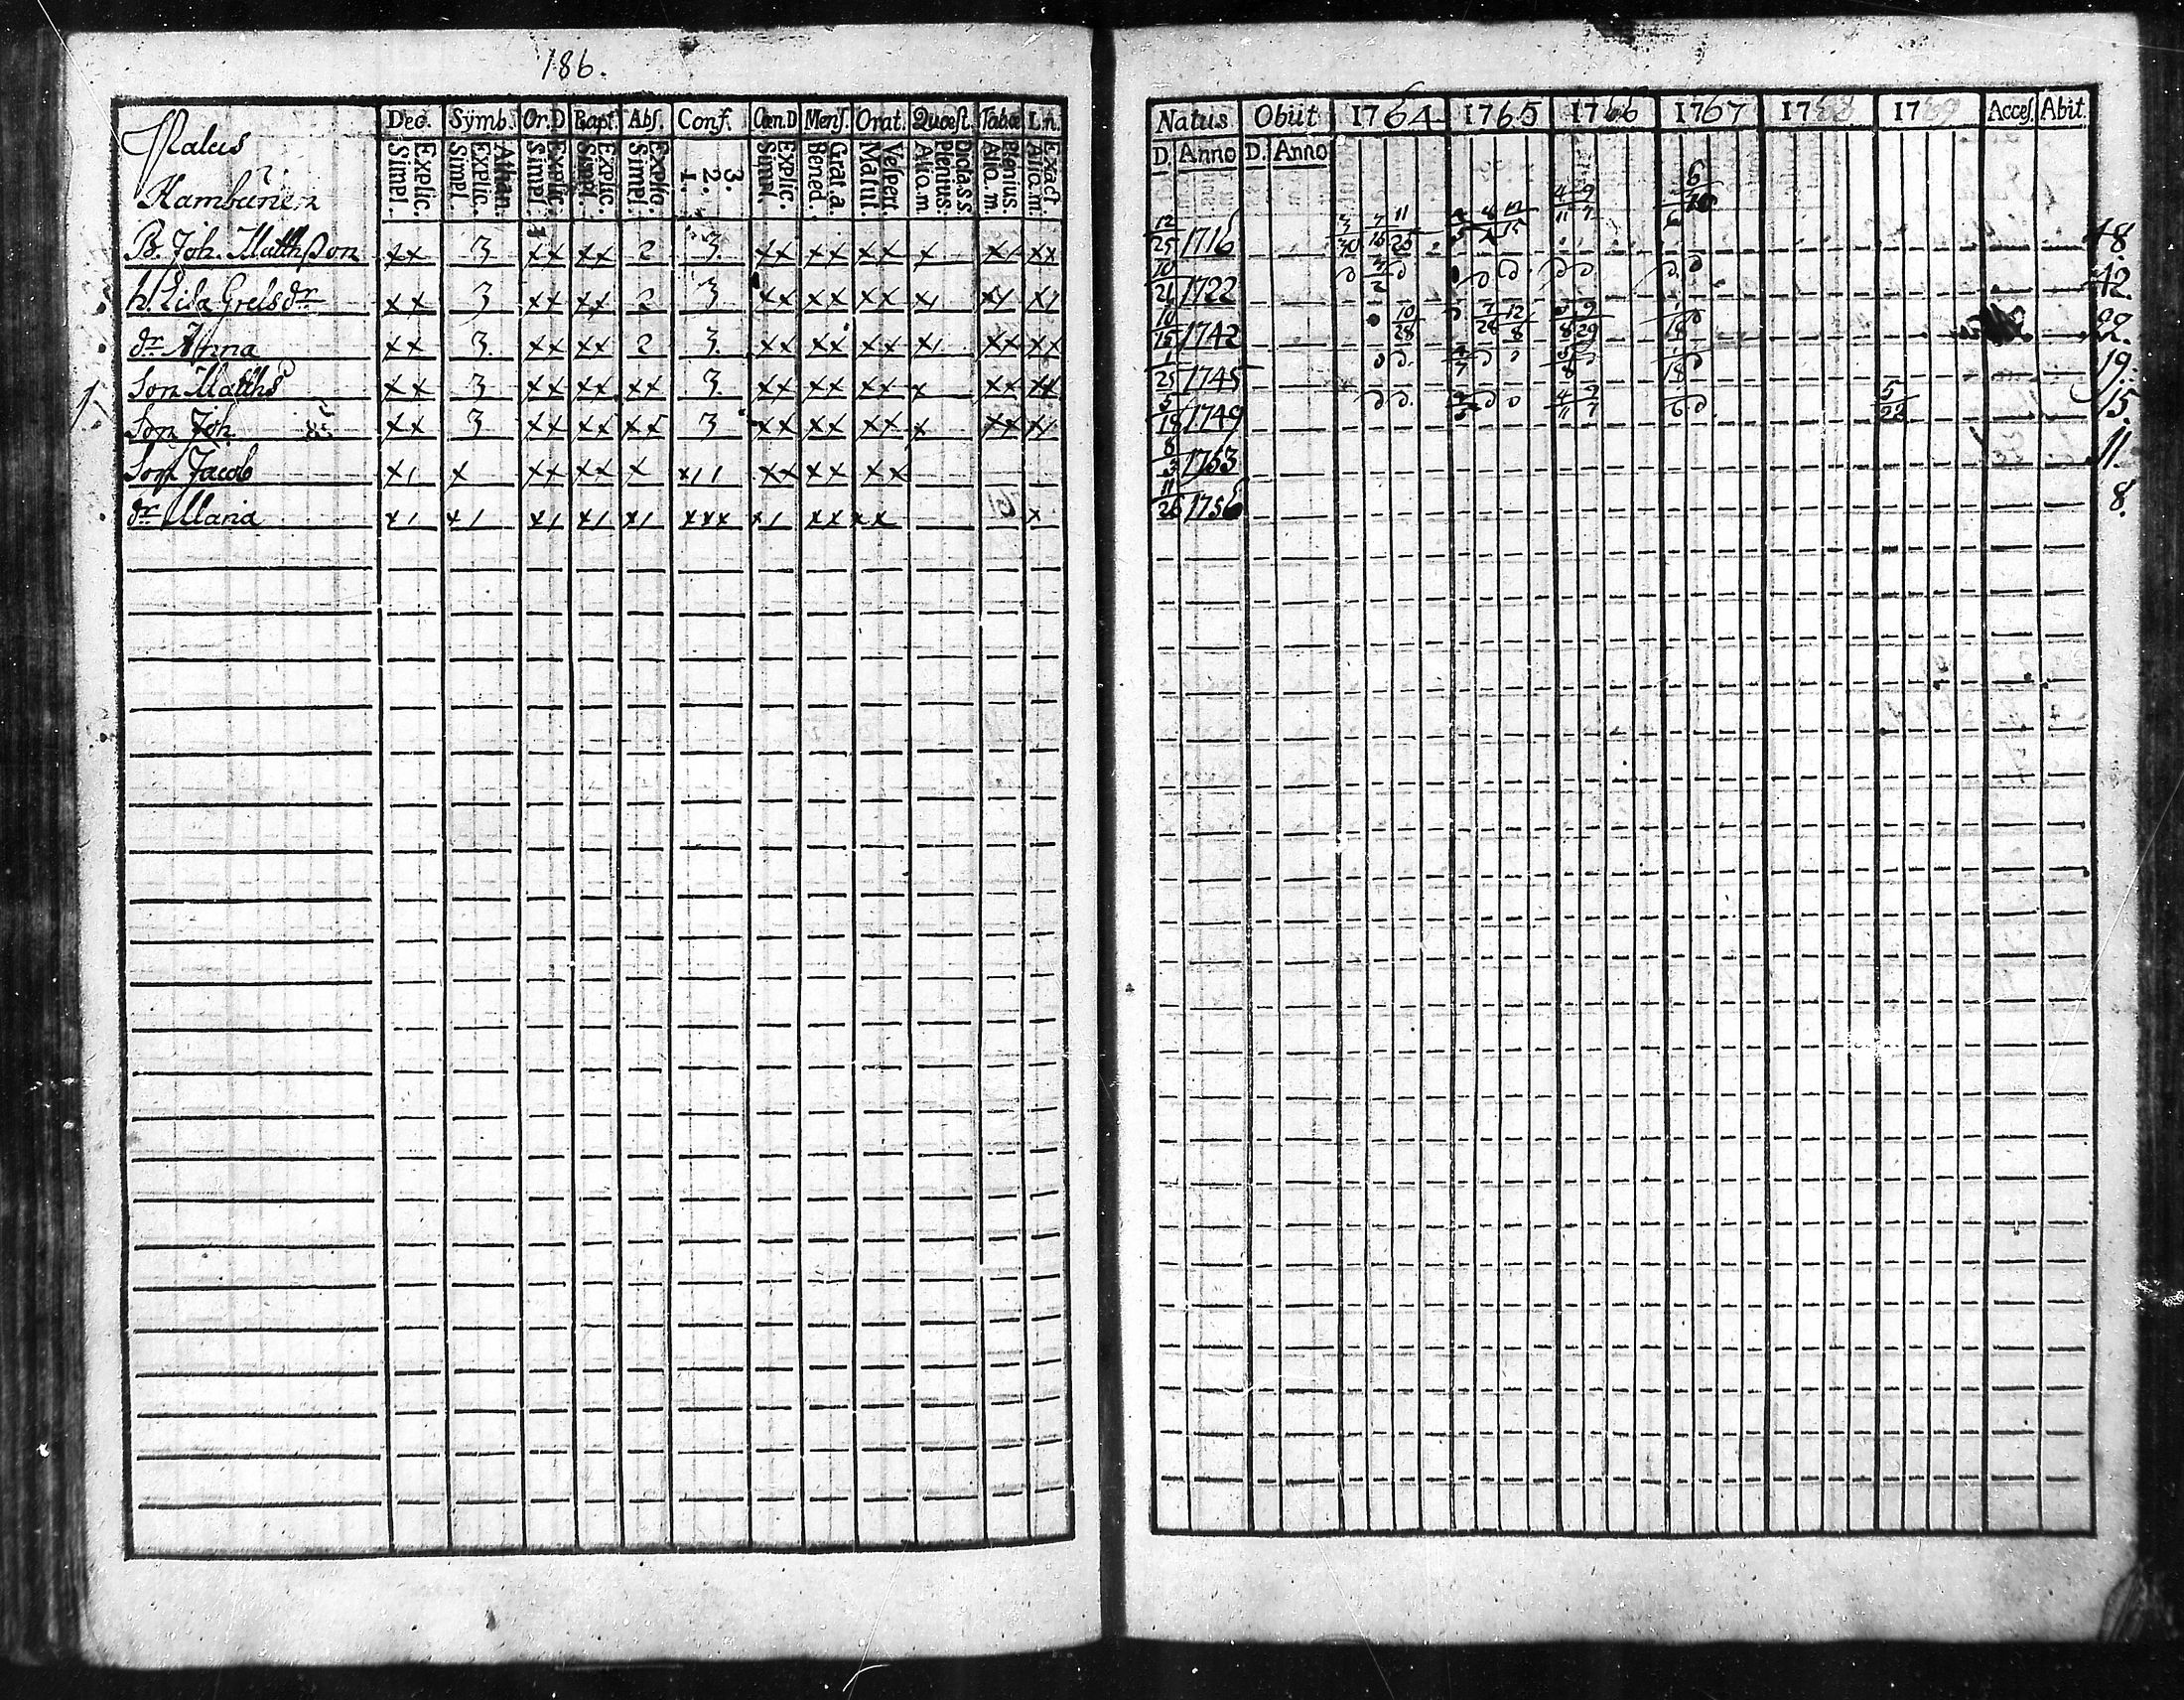 186.
Palus Dec. Symb. Or. D Bapt. Abs. Conf. Cœn. D Mens. Orat. Quæst. Tabæ L. n.
Simpl. Explic. Simpl. Explic. Athan. Simpl. Explic. Simpl. Explic. Simpl. Explic. 1. 2. 3. Simpl. Explic. Bened. Grat. a. Matut. Vespert. Alio. m. Plenius. Dicta. s.s. Alio. m. Plenius. Alio. m. Exact.
B. Joh. Matthsson xx 3 xx xx 2 3. xx xx xx x x1 xx
h. Lisa Grelsdr xx 3 xx xx 2 3 xx xx xx x1 x1 x1
dr Anna xx 3. xx xx 2 3. xx xx xx x1 xx xx
Son Matths xx 3 xx xx xx 3. xx xx xx x xx xx
Son Joh. xx 3 xx xx xx 3 xx xx xx x xx x1
Son Jacob x1 x xx xx x x11 xx xx xx
dr Maria x1 x1 x1 x1 x1 xxx x1 xx xx x
Natus Obiit 1764 1765 1766 1767 1768 1769 Acces. Abiit
D. Anno D. Anno
12/25 1716 3/30 11/25 4/11 9/7 48.
10/21 1722 3/2 42.
10/15 1742 10/28 7/28 12/8 9/29 22.
1/25 1745 19.
5/18 1749 4/11 9/7 5/22 15.
8/3 1753 11.
11/26 1756 8.